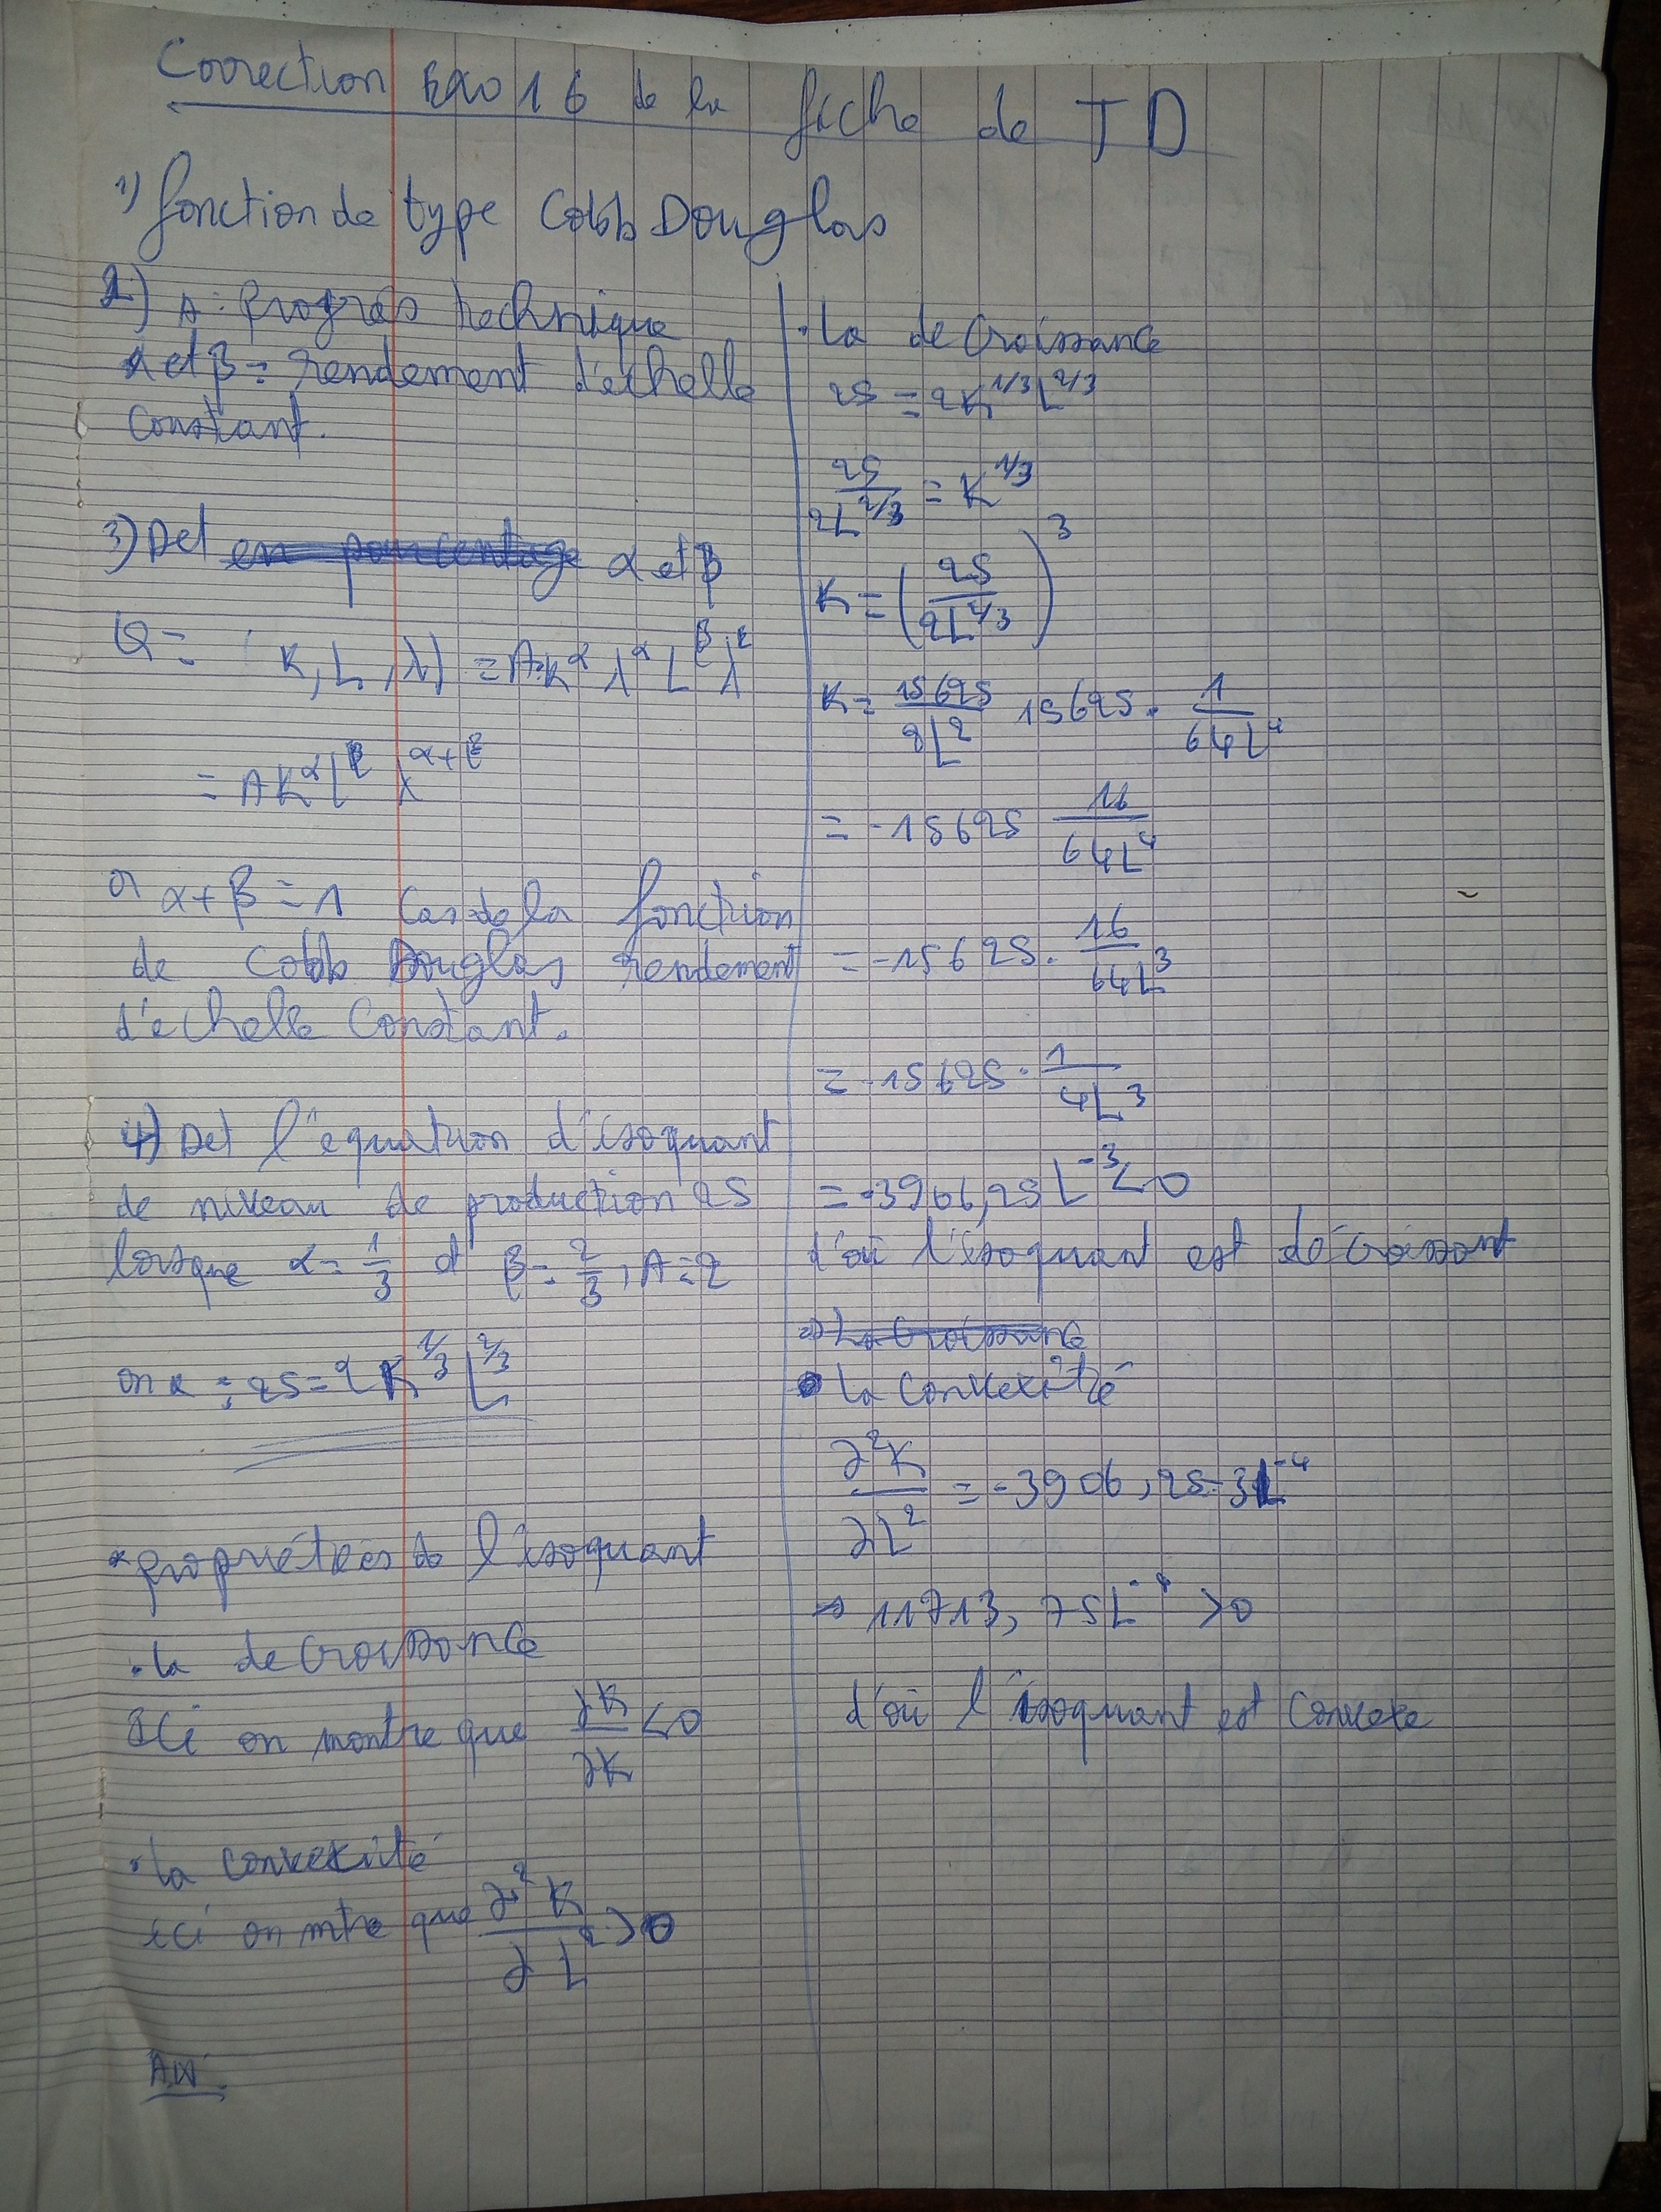 Correction Exo 16 de la fiche de TD
1) fonction de type Cobb Douglas
2) A : Progrès technique
α et β = rendement d'échelle
constant.
3) Det en pourcentage α et β
Q = (K, L, λ) = A K^α λ^α L^β λ^β
= A K^α L^β λ^(α+β)
or α + β = 1 Cas de la fonction
de Cobb Douglas rendement
d'échelle Constant.
4) Det l'équation d'isoquant
de niveau de production 25
lorsque α = 1/3 et β = 2/3, A = 2
on a : 25 = 2 K^(1/3) L^(2/3)
* propriétées de l'isoquant
. la decroissance
Ici on montre que ∂K/∂K < 0
. la convexité
ici on mtre que ∂²K/∂L² > 0
AN
. la decroissance
25 = 2K^(1/3) L^(2/3)
25/2L^(2/3) = K^(1/3)
K = (25/2L^(2/3))^3
K = 15625/8L² 15625 . 1/64L⁴
= -15625 16/64L⁴
= -15625 . 16/64L³
= -15625 . 1/4L³
= -3906,25 L⁻³ < 0
d'où l'isoquant est décroissant
=> La Croissance
• la convexité
∂²K/∂L² = -3906,25 -3L⁻⁴
→ 11713,75L⁻⁴ > 0
d'où l'isoquant est convexe